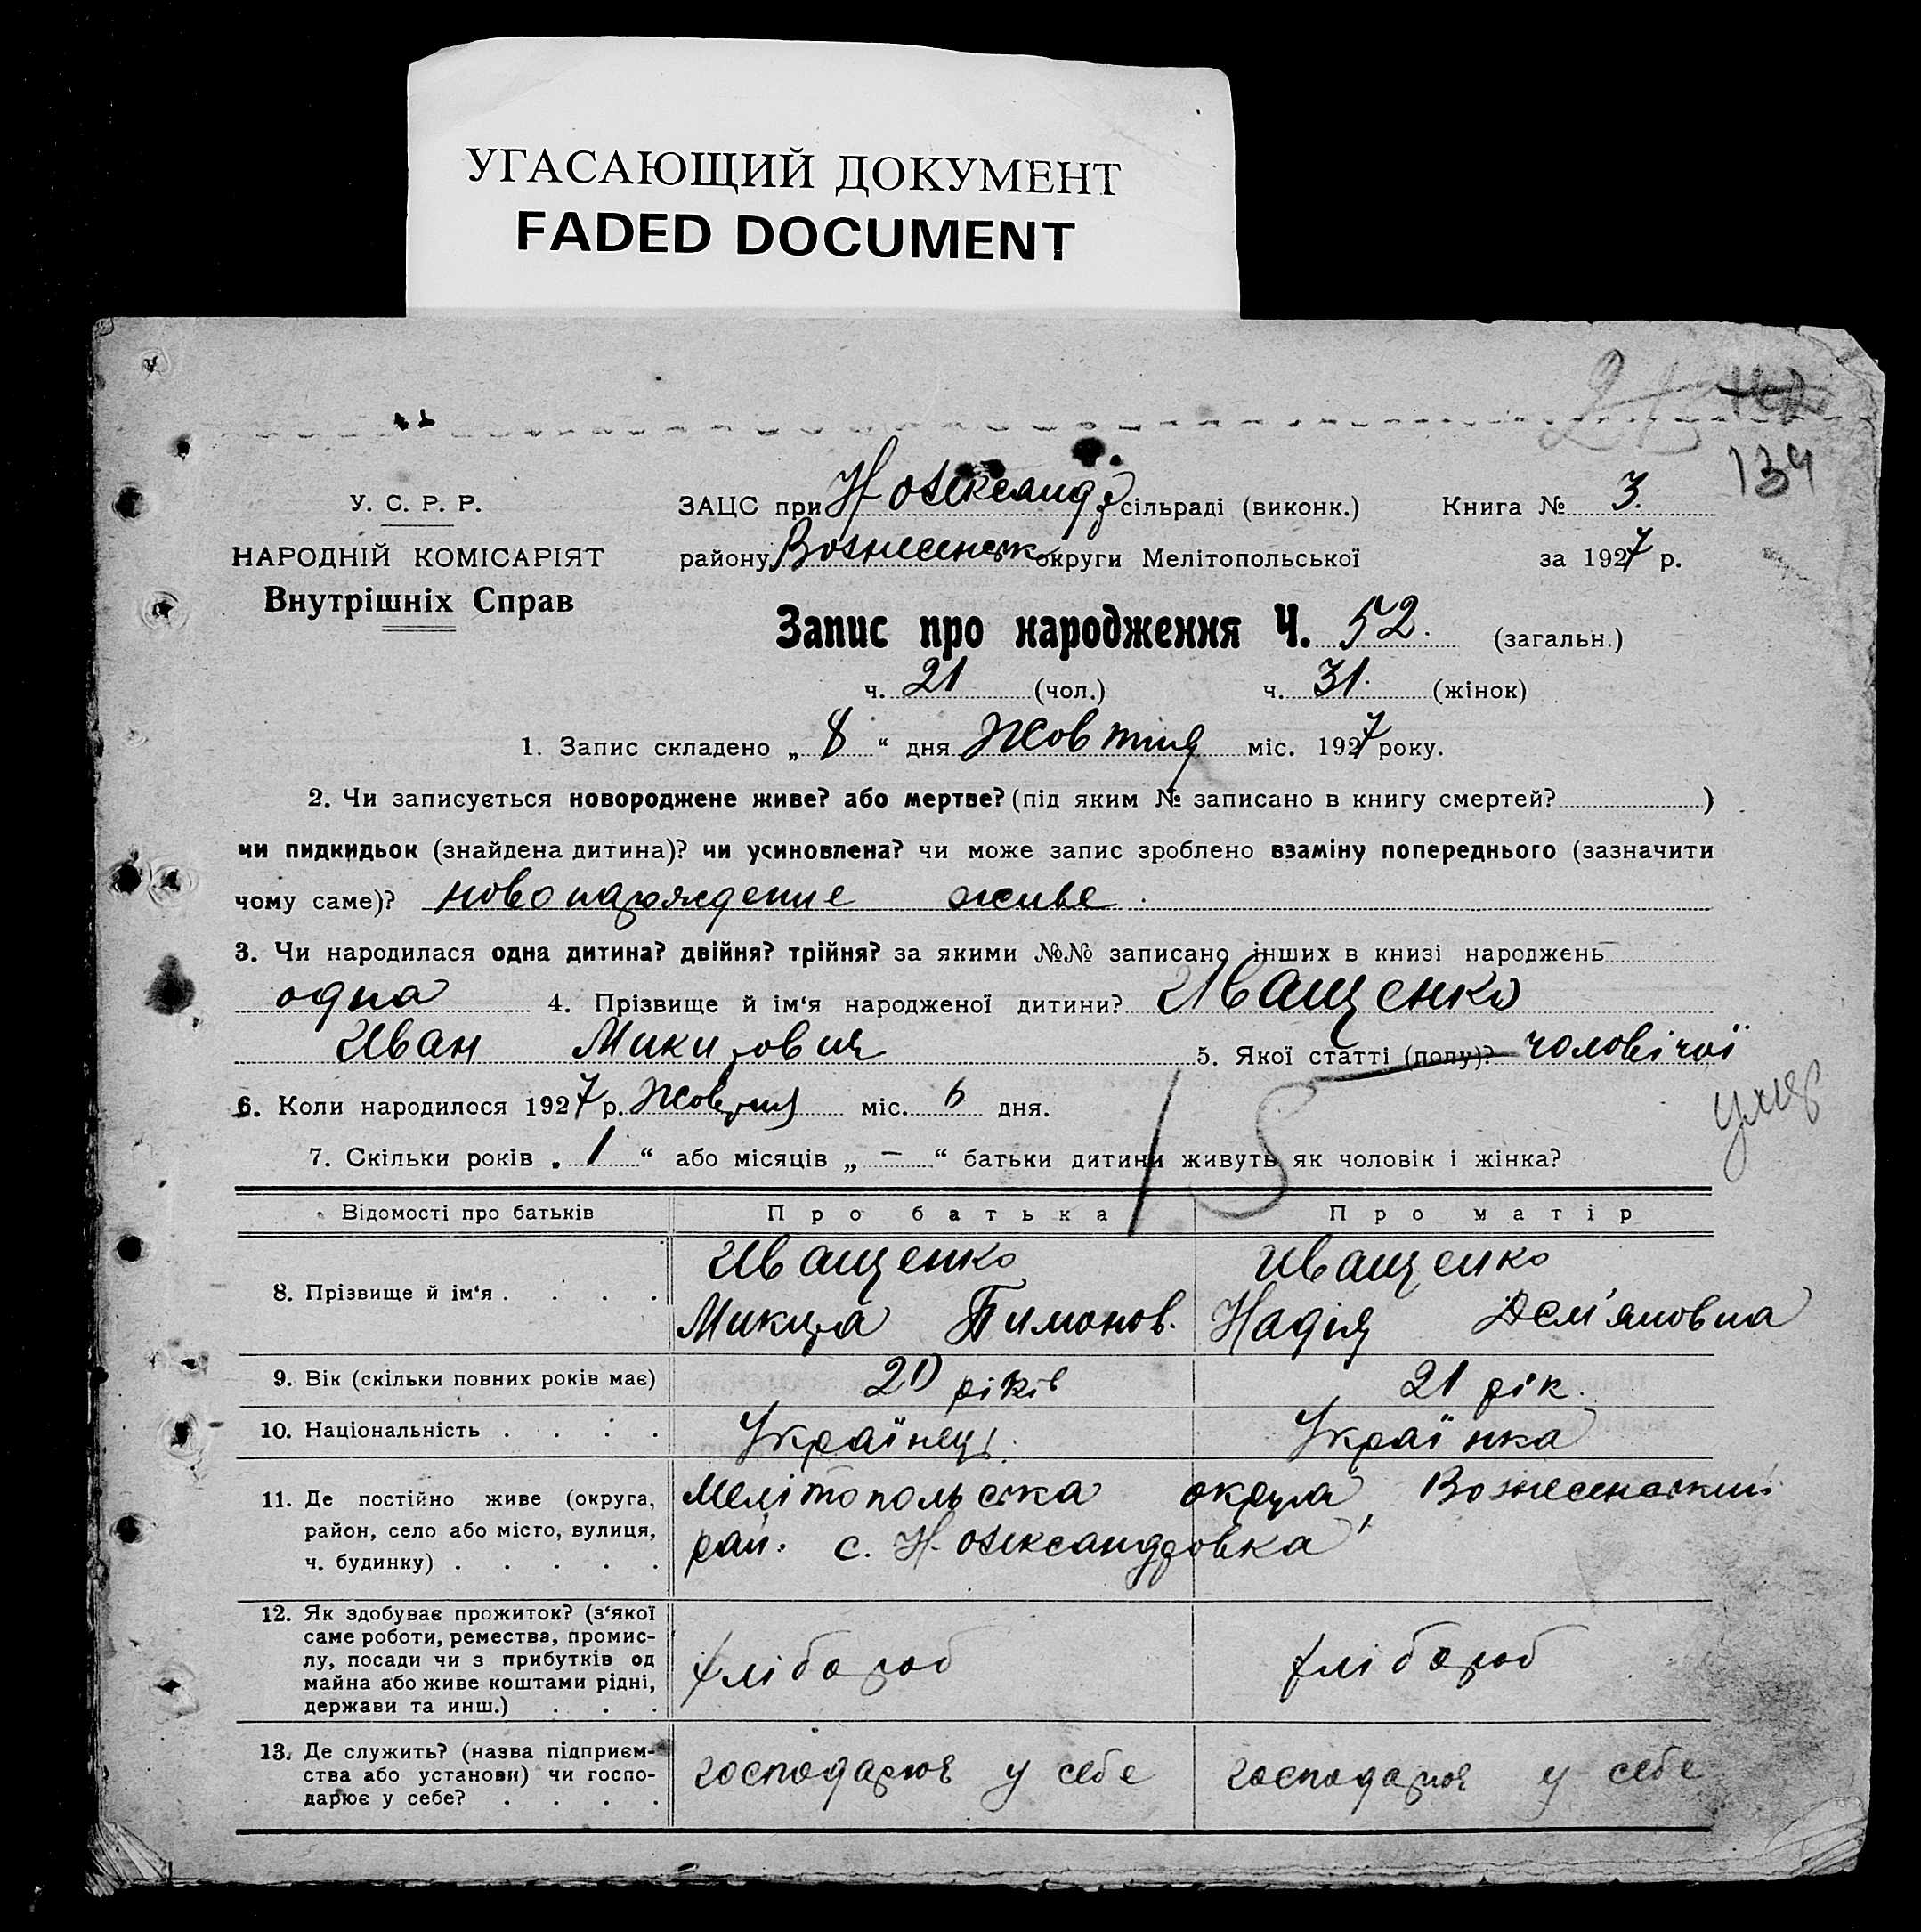 УГАСАЮЩИЙ ДОКУМЕНТ
FADED DOCUMENT
134
У. С. Р. Р.
НАРОДНІЙ КОМІСАРІЯТ
Внутрішніх Справ
ЗАЦС при Н Олександр сільраді (виконк.) Книга № 3.
району Вознесенськ округи Мелітопольської за 1927 р.
Запис про народження Ч. 52. (загальн.)
ч. 21 (чол.) ч. 31. (жінок)
1. Запис складено „ 8 “ дня Жовтня міс. 1927 року.
2. Чи записується новороджене живе? або мертве? (під яким № записано в книгу смертей? )
чи пидкидьок (знайдена дитина)? чи усиновлена? чи може запис зроблено взаміну попереднього (зазначити
чому саме)? новонарождение живе.
3. Чи народилася одна дитина? двійня? трійня? за якими №№ записано інших в книзі народжень
одна 4. Прізвище й ім‘я народженої дитини? Иващенко
Иван Микитович 5. Якої статті (полу)? чоловічої
6. Коли народилося 1927 р. Жовтня міс. 6 дня.
7. Скільки років „ 1 “ або місяців „ — “ батьки дитини живуть як чоловік і жінка?
15
Відомості про батьків Про батька Про матір
8. Прізвище й ім‘я . . . . Иващенко Иващенко
Микита Тимонов. Надія Дем'яновна
9. Вік (скільки повних років має) 20 років 21 рік.
10. Національність . . . . Українець. Українка
11. Де постійно живе (округа, Мелітопольська округа, Вознесенський
район, село або місто, вулиця, рай. с. Н-Олександровка
ч. будинку) . . . . .
12. Як здобуває прожиток? (з‘якої
саме роботи, ремества, промис-
лу, посади чи з прибутків од хлібороб хлібороб
майна або живе коштами рідні,
держави та инш.) . . .
13. Де служить? (назва підприєм-
ства або установи) чи госпо- господарює у себе господарює у себе
дарює у себе? . . . .